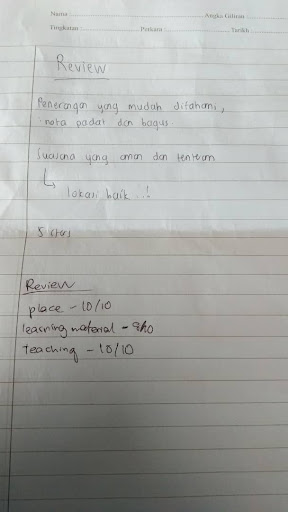 Nama
Angka Giliran
Tingkatan
Perkara
Tarikh
Review
Penerangan yang mudah difahami,
nota padat dan bagus.
Suasana yang aman dan tenteram
↳ lokasi baik ..!
5 stars
Review
place - 10/10
learning material - 9/10
teaching - 10/10